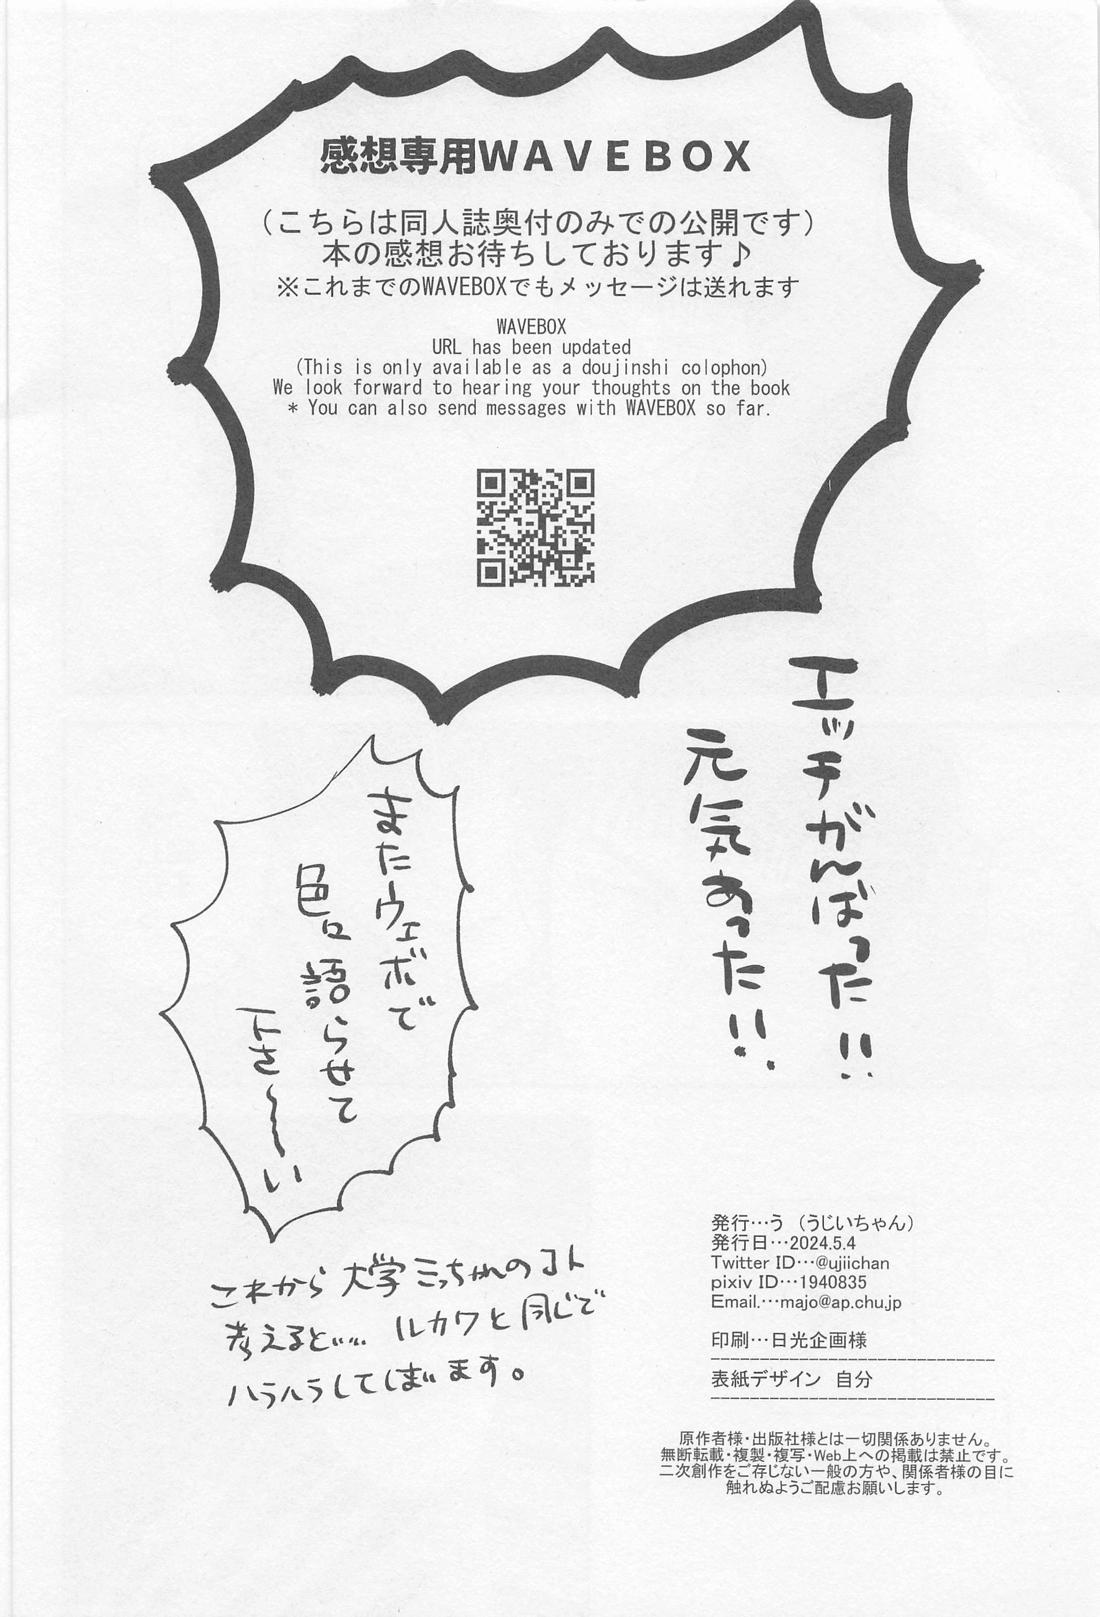 感想専用WAVEBOX
(こちらは同人誌奥付のみでの公開です)
本の感想お待ちしております♪
※これまでのWAVEBOXでもメッセージは送れます
WAVEBOX
URL has been updated
(This is only available as a doujinshi colophon)
We look forward to hearing your thoughts on the book
* You can also send messages with WAVEBOX so far.
エッチがんばった!!
元気あった!!
またウェボで
色々語らせて
下さ〜い
これから大学ミっちゃんのコト
考えると…… ルカワと同じで
ハラハラしてしまいます。
発行…う (うじいちゃん)
発行日…2024.5.4
Twitter ID…@ujiichan
pixiv ID…1940835
Email.…majo@ap.chu.jp
印刷…日光企画様
表紙デザイン 自分
原作者様・出版社様とは一切関係ありません。
無断転載・複製・複写・Web上への掲載は禁止です。
二次創作をご存じない一般の方や、関係者様の目に
触れぬようご配慮お願いします。